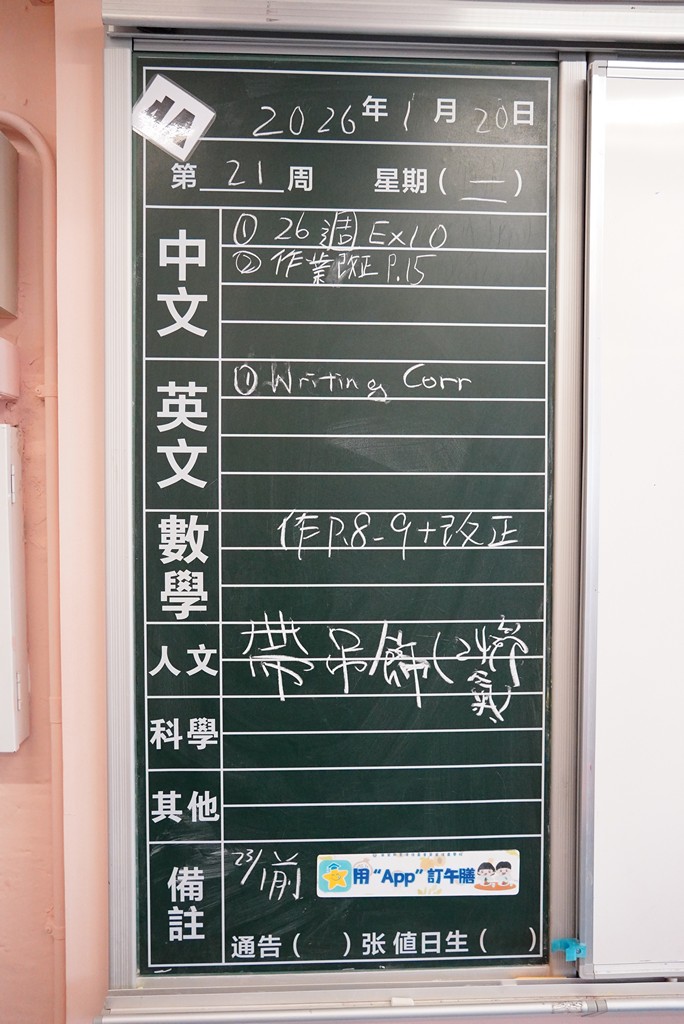 2026年1月20日
第 21 周 星期(二)
中文
① 26週 Ex10
② 作業改正 P.15
英文
① Writing Corr
數學
作P.8-9+改正
人文
帶吊飾(24節氣)
科學
其他
備註
23/1前
用“App”訂午膳
通告( )张 值日生( )